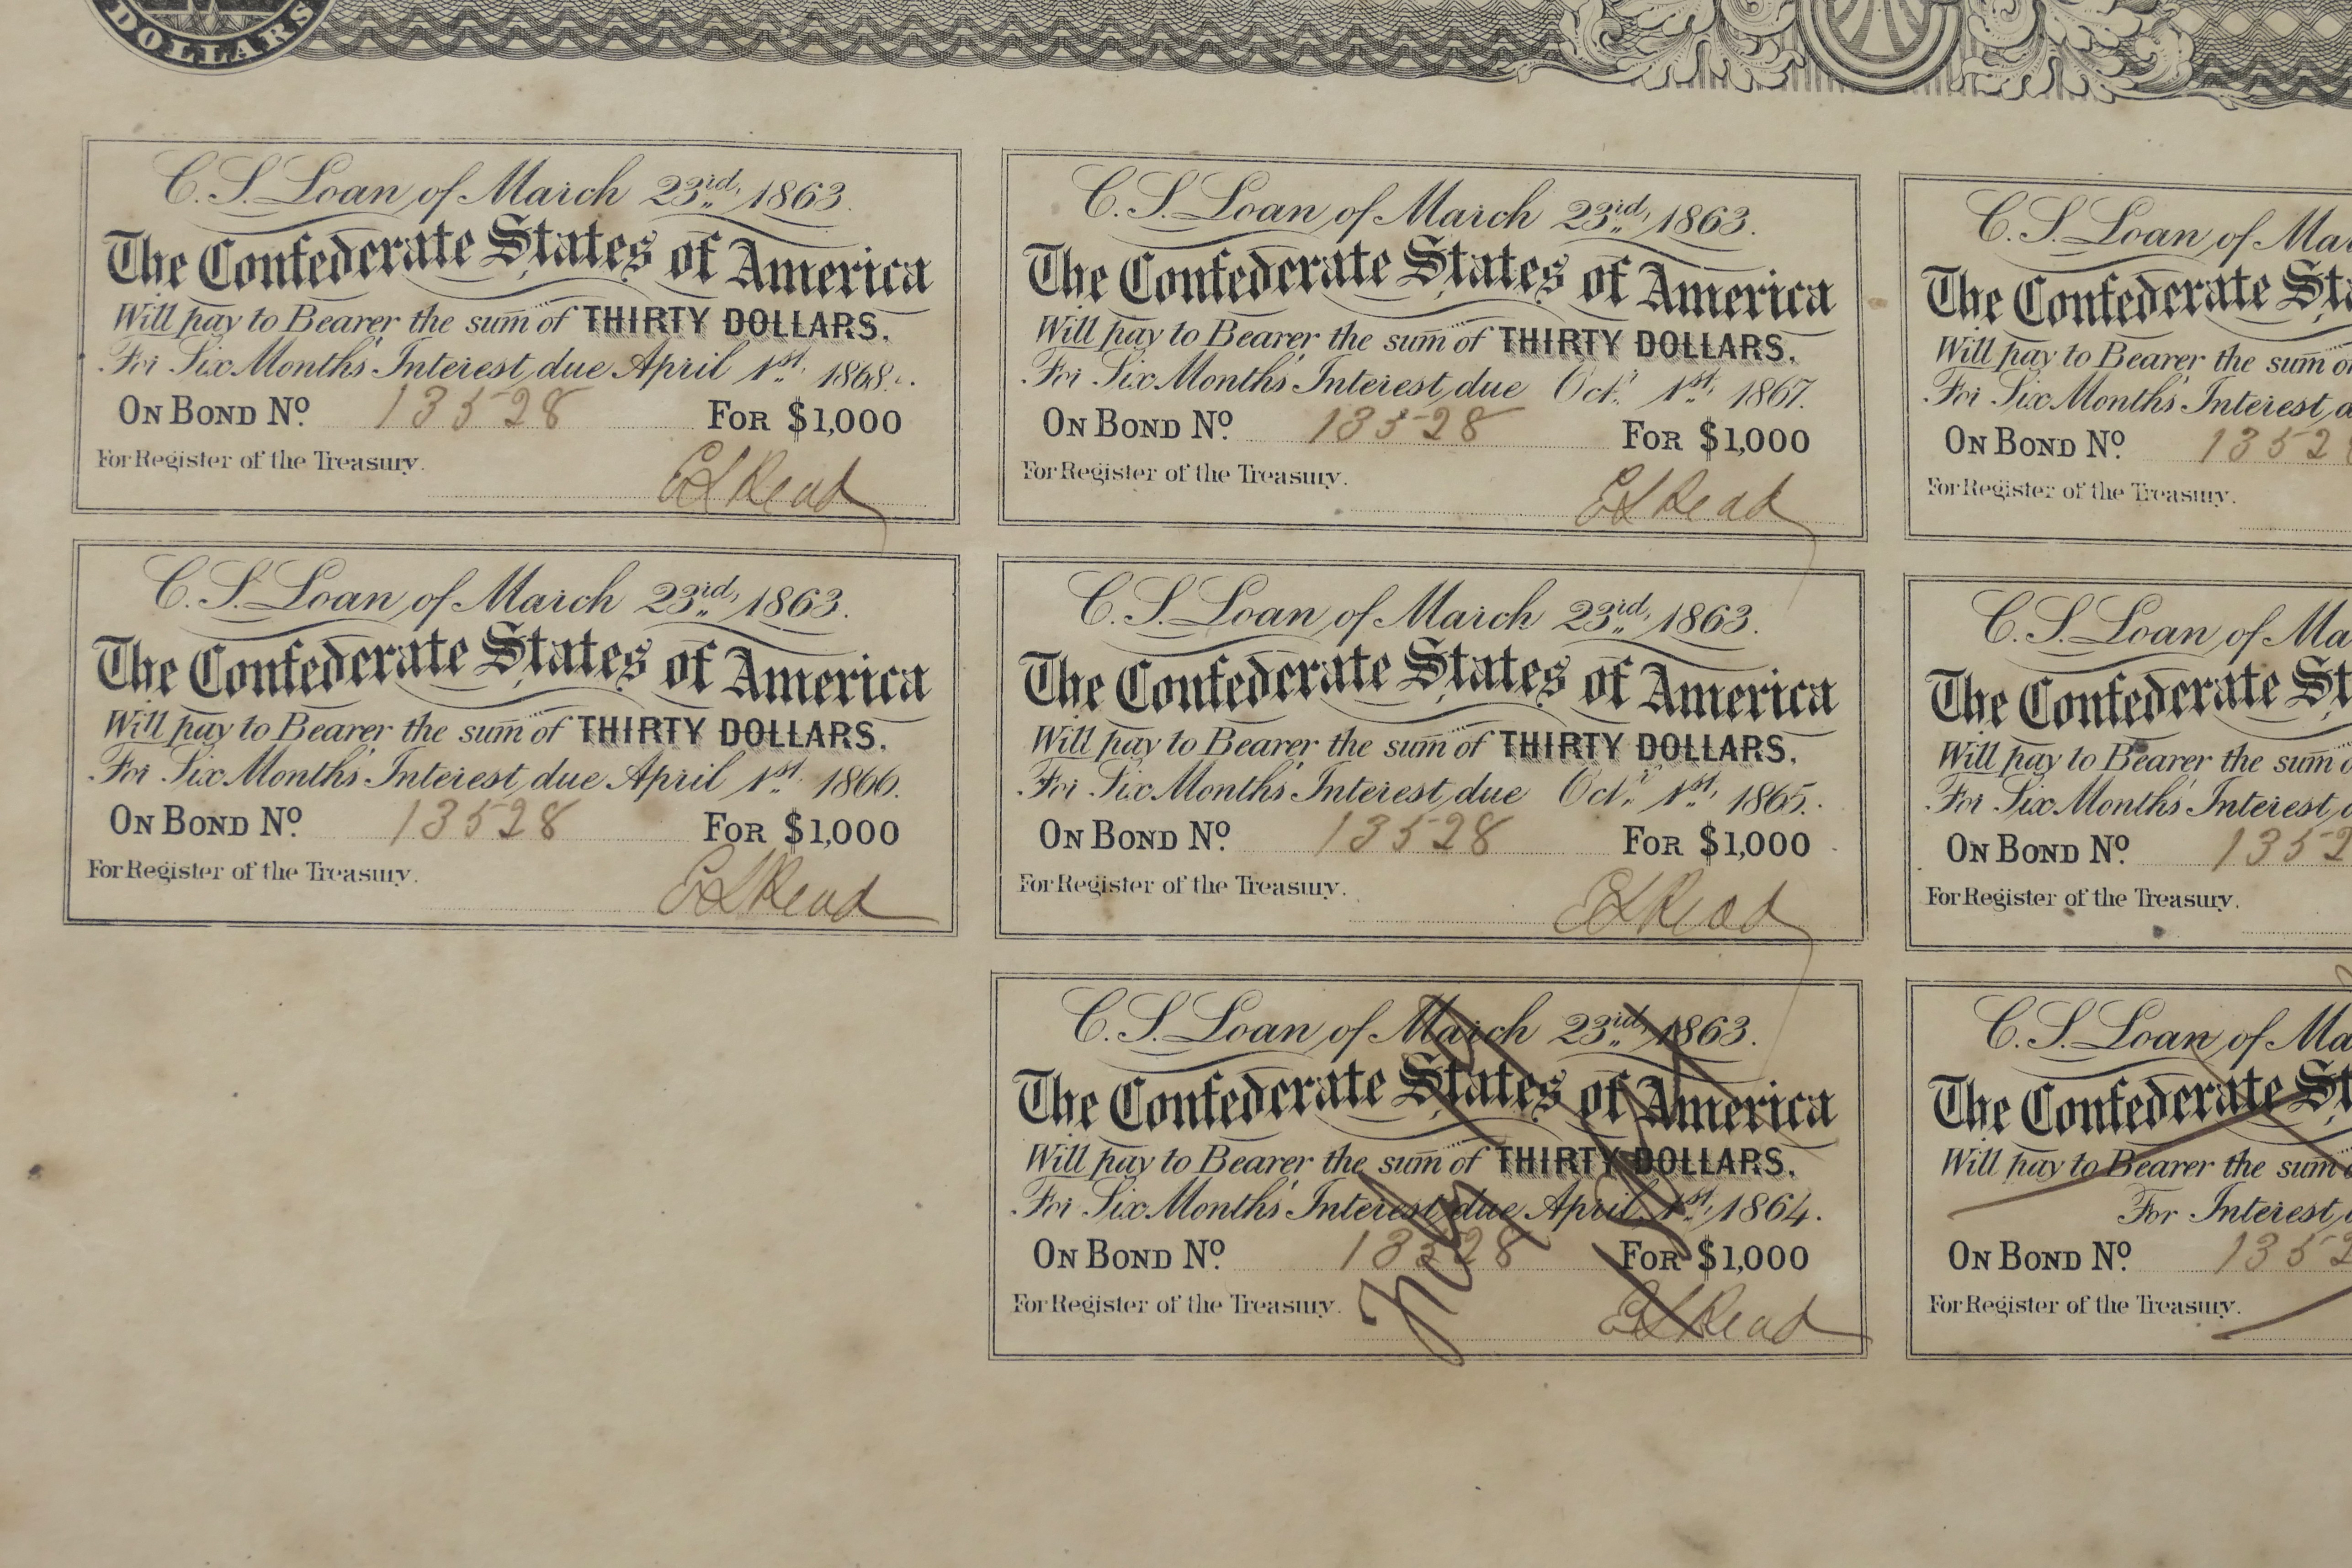 DOLLARS
C. S. Loan of March 23rd, 1863.
The Confederate States of America
Will pay to Bearer the sum of THIRTY DOLLARS.
For Six Months' Interest, due April 1st, 1868.
ON BOND No. 13528 FOR $1,000
For Register of the Treasury.
EL Read
C. S. Loan of March 23rd, 1863.
The Confederate States of America
Will pay to Bearer the sum of THIRTY DOLLARS.
For Six Months' Interest, due Octr. 1st, 1867.
ON BOND No. 13528 FOR $1,000
For Register of the Treasury.
EL Read
C. S. Loan of Ma
The Confederate Sta
Will pay to Bearer the sum o
For Six Months' Interest, d
ON BOND No. 1352
For Register of the Treasury.
C. S. Loan of March 23rd, 1863.
The Confederate States of America
Will pay to Bearer the sum of THIRTY DOLLARS.
For Six Months' Interest, due April 1st, 1866.
ON BOND No. 13528 FOR $1,000
For Register of the Treasury.
EL Read
C. S. Loan of March 23rd, 1863.
The Confederate States of America
Will pay to Bearer the sum of THIRTY DOLLARS.
For Six Months' Interest, due Octr. 1st, 1865.
ON BOND No. 13528 FOR $1,000
For Register of the Treasury.
EL Read
C. S. Loan of Ma
The Confederate St
Will pay to Bearer the sum
For Six Months' Interest,
ON BOND No. 1352
For Register of the Treasury.
C. S. Loan of March 23rd, 1863.
The Confederate States of America
Will pay to Bearer the sum of THIRTY DOLLARS.
For Six Months' Interest, due April 1st, 1864.
ON BOND No. 13528 FOR $1,000
For Register of the Treasury.
EL Read
C. S. Loan of Ma
The Confederate St
Will pay to Bearer the sum
For Interest,
ON BOND No. 1352
For Register of the Treasury.